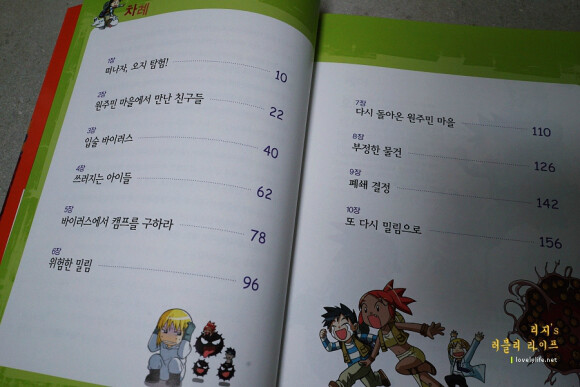 차례
1장
떠나자, 오지 탐험! 10
2장
원주민 마을에서 만난 친구들 22
3장
입술 바이러스 40
4장
쓰러지는 아이들 62
5장
바이러스에서 캠프를 구하라 78
6장
위험한 밀림 96
7장
다시 돌아온 원주민 마을 110
8장
부정한 물건 126
9장
폐쇄 결정 142
10장
또 다시 밀림으로 156
리지's
러블리 라이프
lovelylife.net